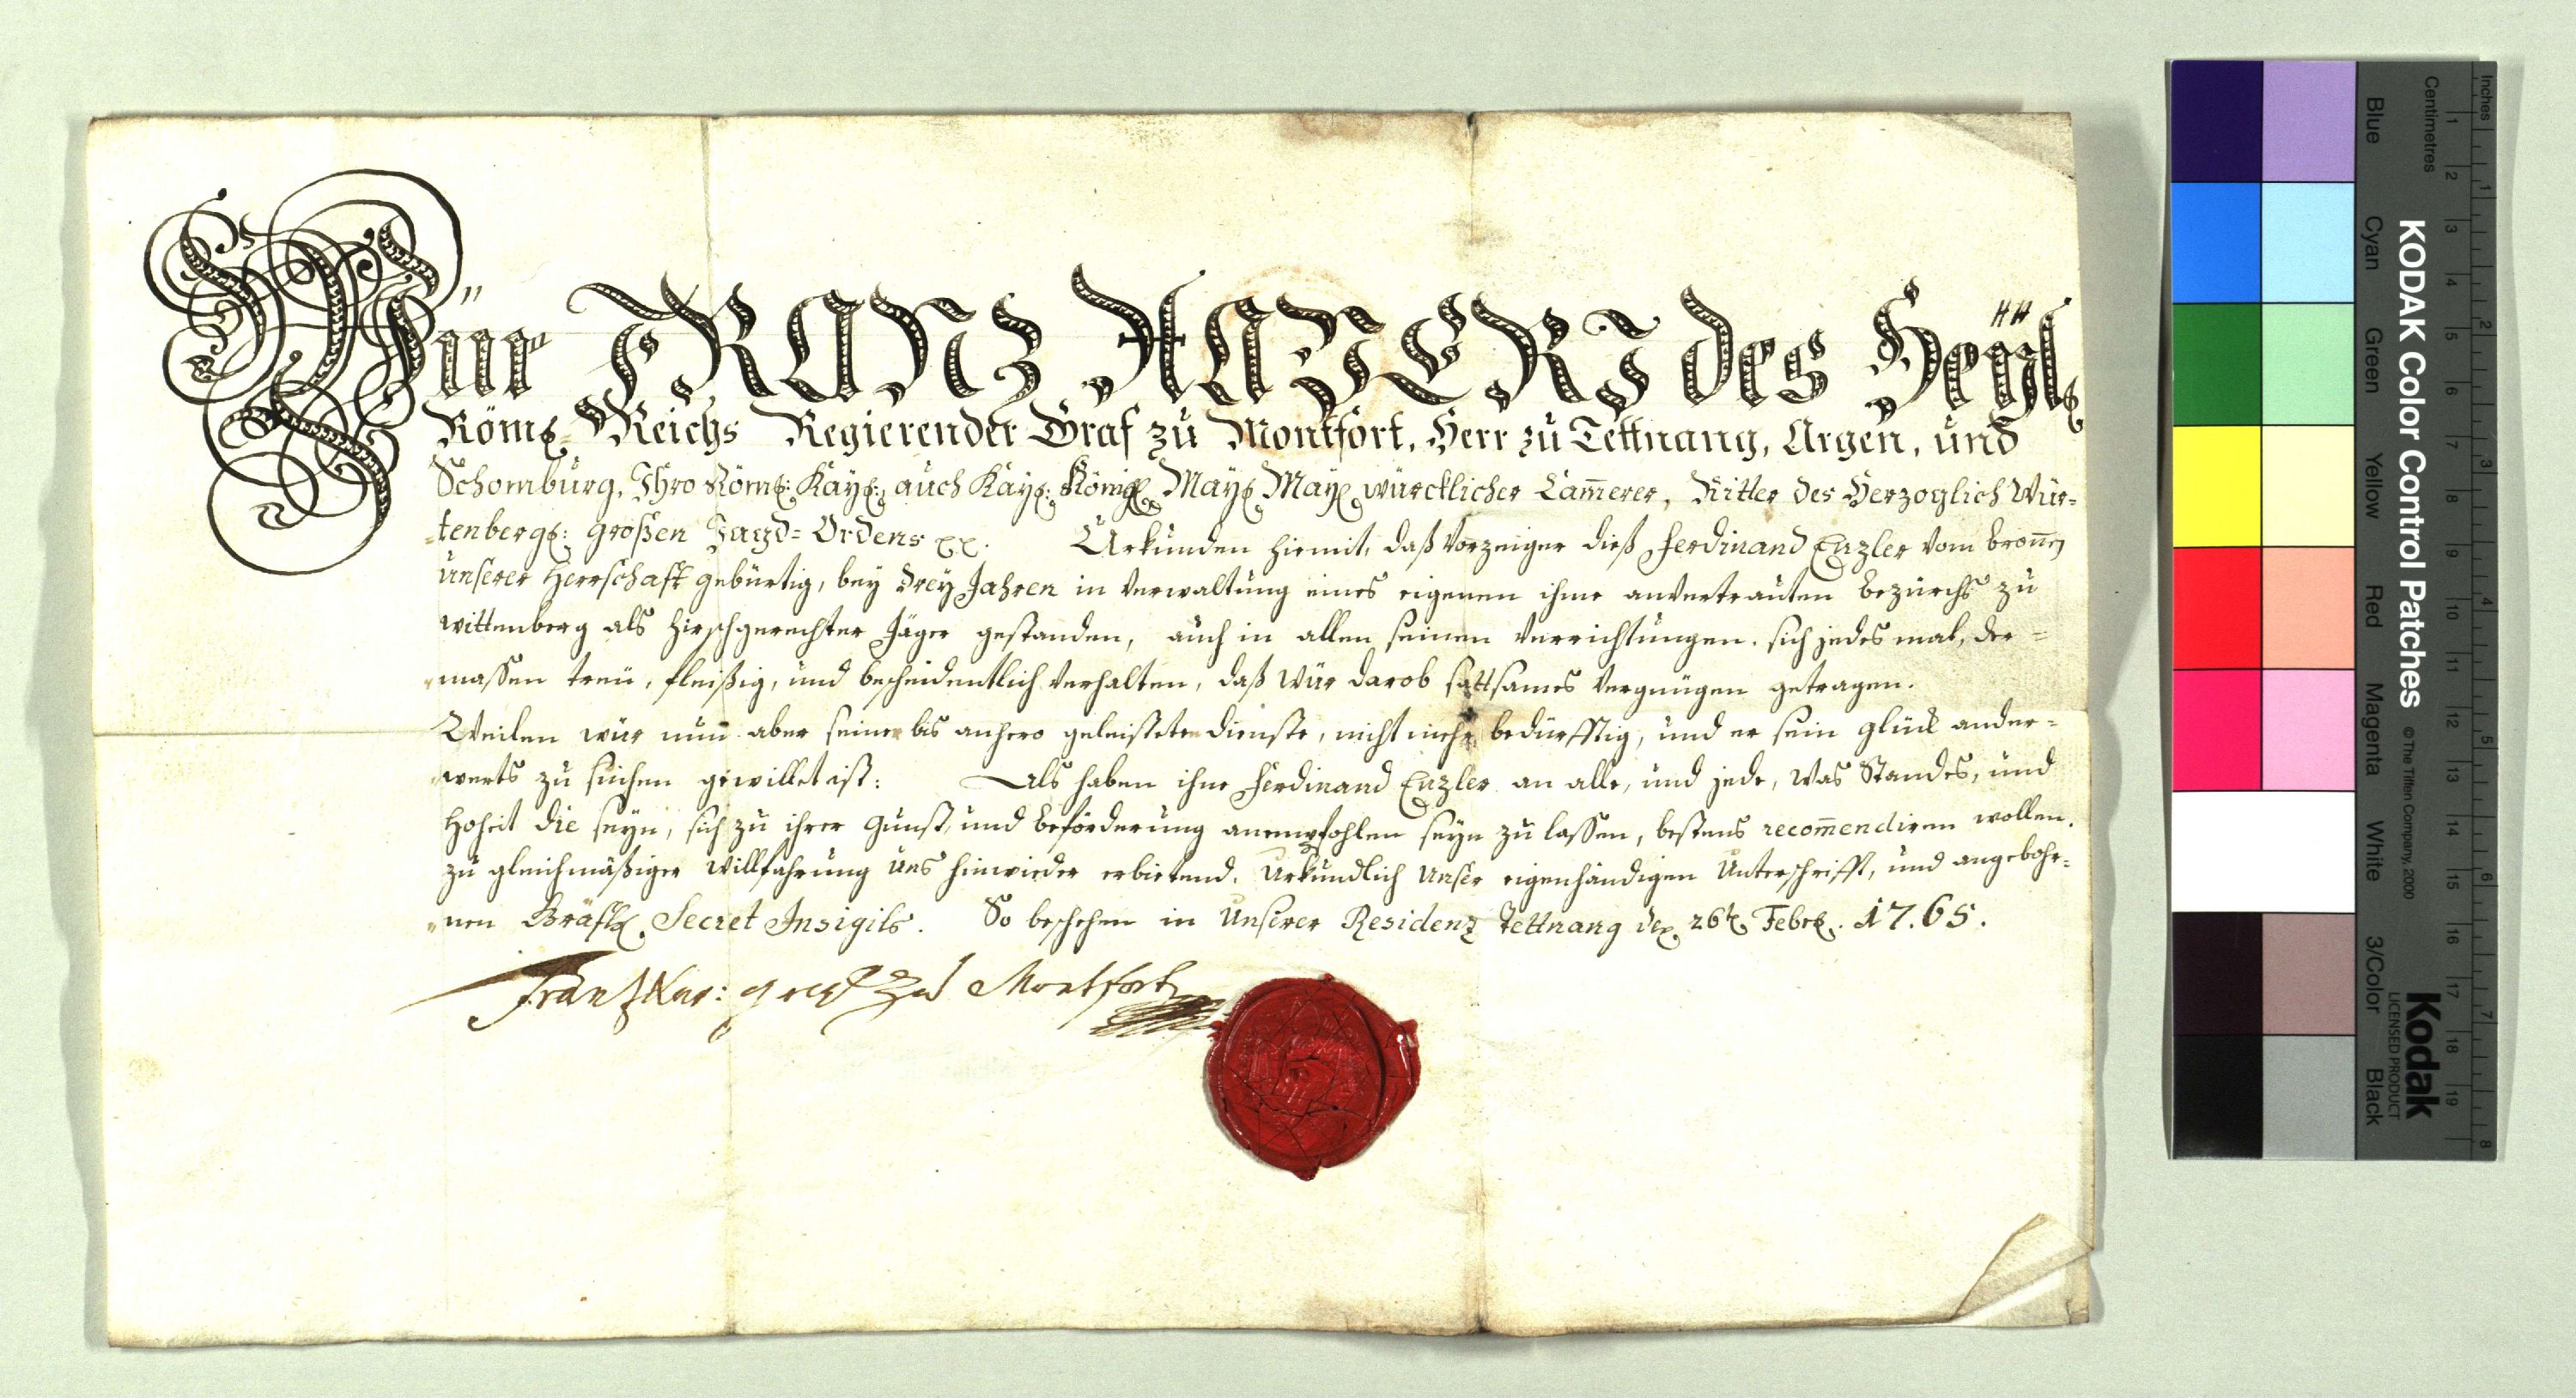 Wür FRANZ XAVERI des Heyl.
Röm. Reichs Regierender Graf zu Montfort, Herr zu Tettnang, Argen, und
Schomburg, Ihro Röm: Kay: auch Kay: König. May. May. würcklicher Cam̅erer, Ritter des Herzoglich Wür-
tenberg: großen Jagd-Ordens
Urkunden hiemit, daß Vorzeiger dieß Ferdinand Enzler vom bron̅en
unserer Herrschaft gebürtig, bey drey Jahren in Verwaltung eines eigenen ihme anvertrauten bezürchs zu
wittenberg als Hirschgerechter Jäger gestanden, auch in allen seinen Verrichtungen sich jedes mal, der-
massen treu, fleißig, und bescheidentlich Verhalten, daß Wür darob sattsames Vergnügen getragen.
Weilen wür nun aber seiner bis anhero geleisteten dienste, nicht mehr bedürfftig, und er sein glück ander-
werts zu suchen gewillet ist: Als haben ihne Ferdinand Enzler an alle, und jede, Was Standes, und
Hoheit die seyn, sich zu ihrer Gunst, und beförderung anempfohlen seyn zu lassen, bestens recom̅endiren wollen.
zu gleichmäßiger Willfahrung uns hinwieder erbietend. Urkundlich Unser eigenhändigen Unterschrifft, und angebohr-
nen Gräfl. Secret Insigils. So beschehen in Unserer Residenz Tettnang den 26t. Febr. 17.65.
Frantz Xav: graf zu Montfort
KODAK Color Control Patches © The Tiffen Company, 2000
Kodak
LICENSED PRODUCT
Blue Cyan Green Yellow Red Magenta White 3/Color Black
Centimetres 1 2 3 4 5 6 7 8 9 10 11 12 13 14 15 16 17 18 19
Inches 1 2 3 4 5 6 7 8